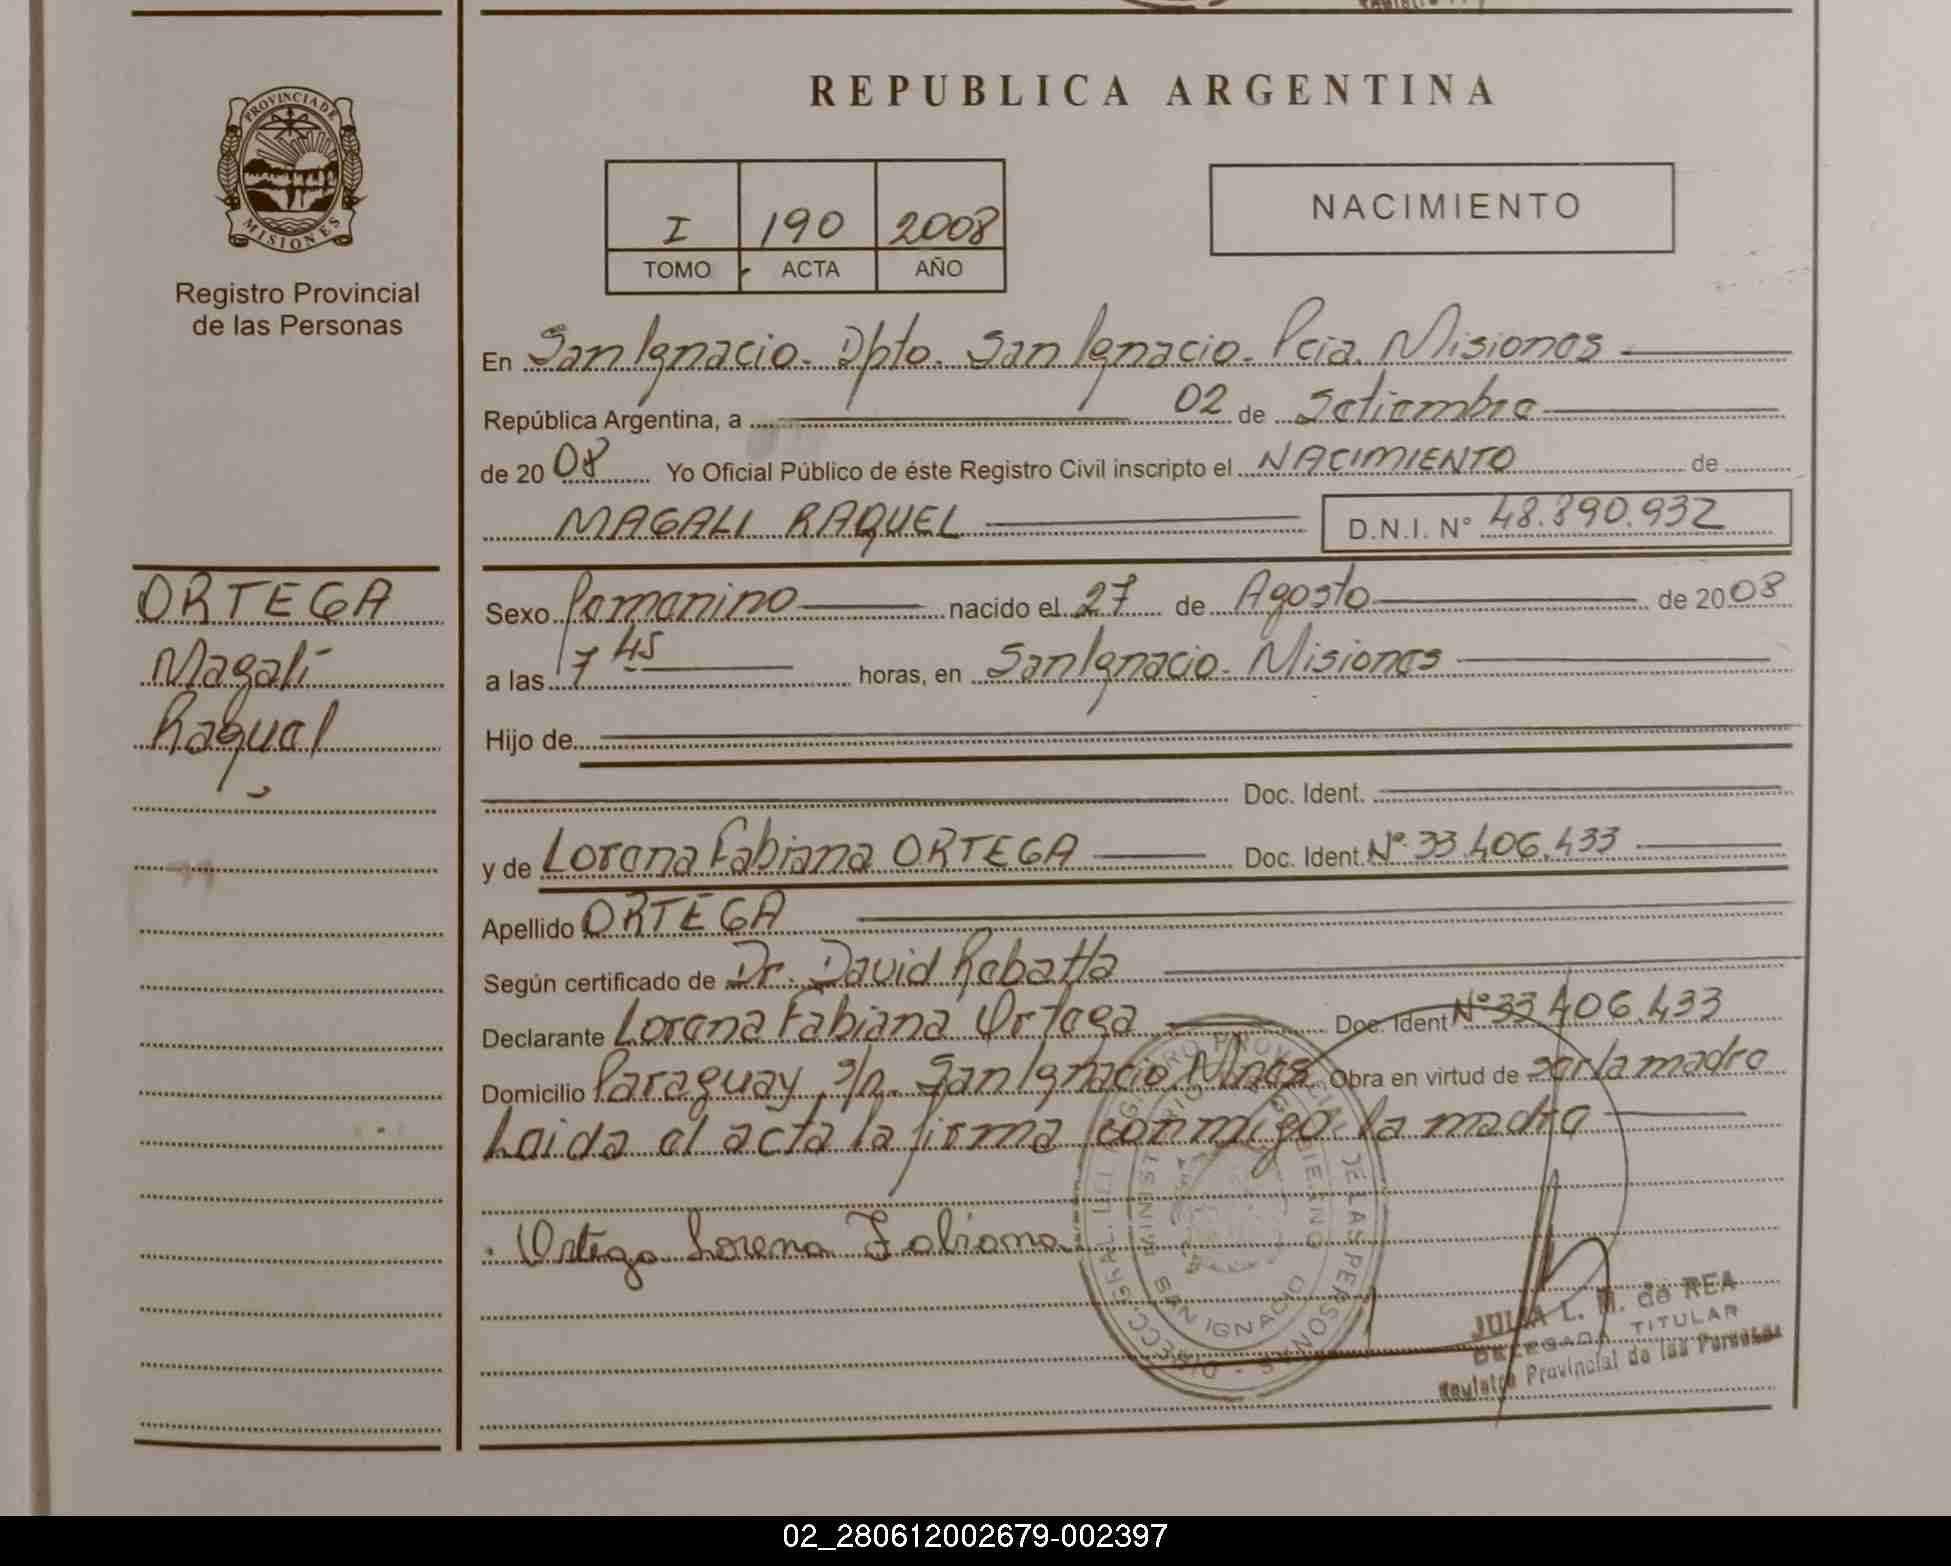 REPUBLICA ARGENTINA
PROVINCIA DE
MISIONES
Registro Provincial
de las Personas
I 190 2008
TOMO ACTA AÑO
NACIMIENTO
En San Ignacio. Dpto. San Ignacio. Pcia. Misiones
República Argentina, a 02 de Setiembre
de 20 08 Yo Oficial Público de éste Registro Civil inscripto el NACIMIENTO de
MAGALI RAQUEL D.N.I. N° 48.390.932
ORTEGA
Magalí
Raquel
Sexo Femenino nacido el 27 de Agosto de 20 08
a las 7 45 horas, en San Ignacio. Misiones
Hijo de
Doc. Ident.
y de Lorena Fabiana ORTEGA Doc. Ident. N°. 33.406.433
Apellido ORTEGA
Según certificado de Dr. David Rebatta
Declarante Lorena Fabiana Ortega Doc. Ident N° 33.406.433
Domicilio Paraguay s/n. San Ignacio Mnes Obra en virtud de ser la madre
Leida el acta la firma conmigo la madre
Ortega Lorena Fabiana
SAN IGNACIO
JULIA L. M. de REA
DELEGADA TITULAR
Registro Provincial de las Personas
02_280612002679-002397